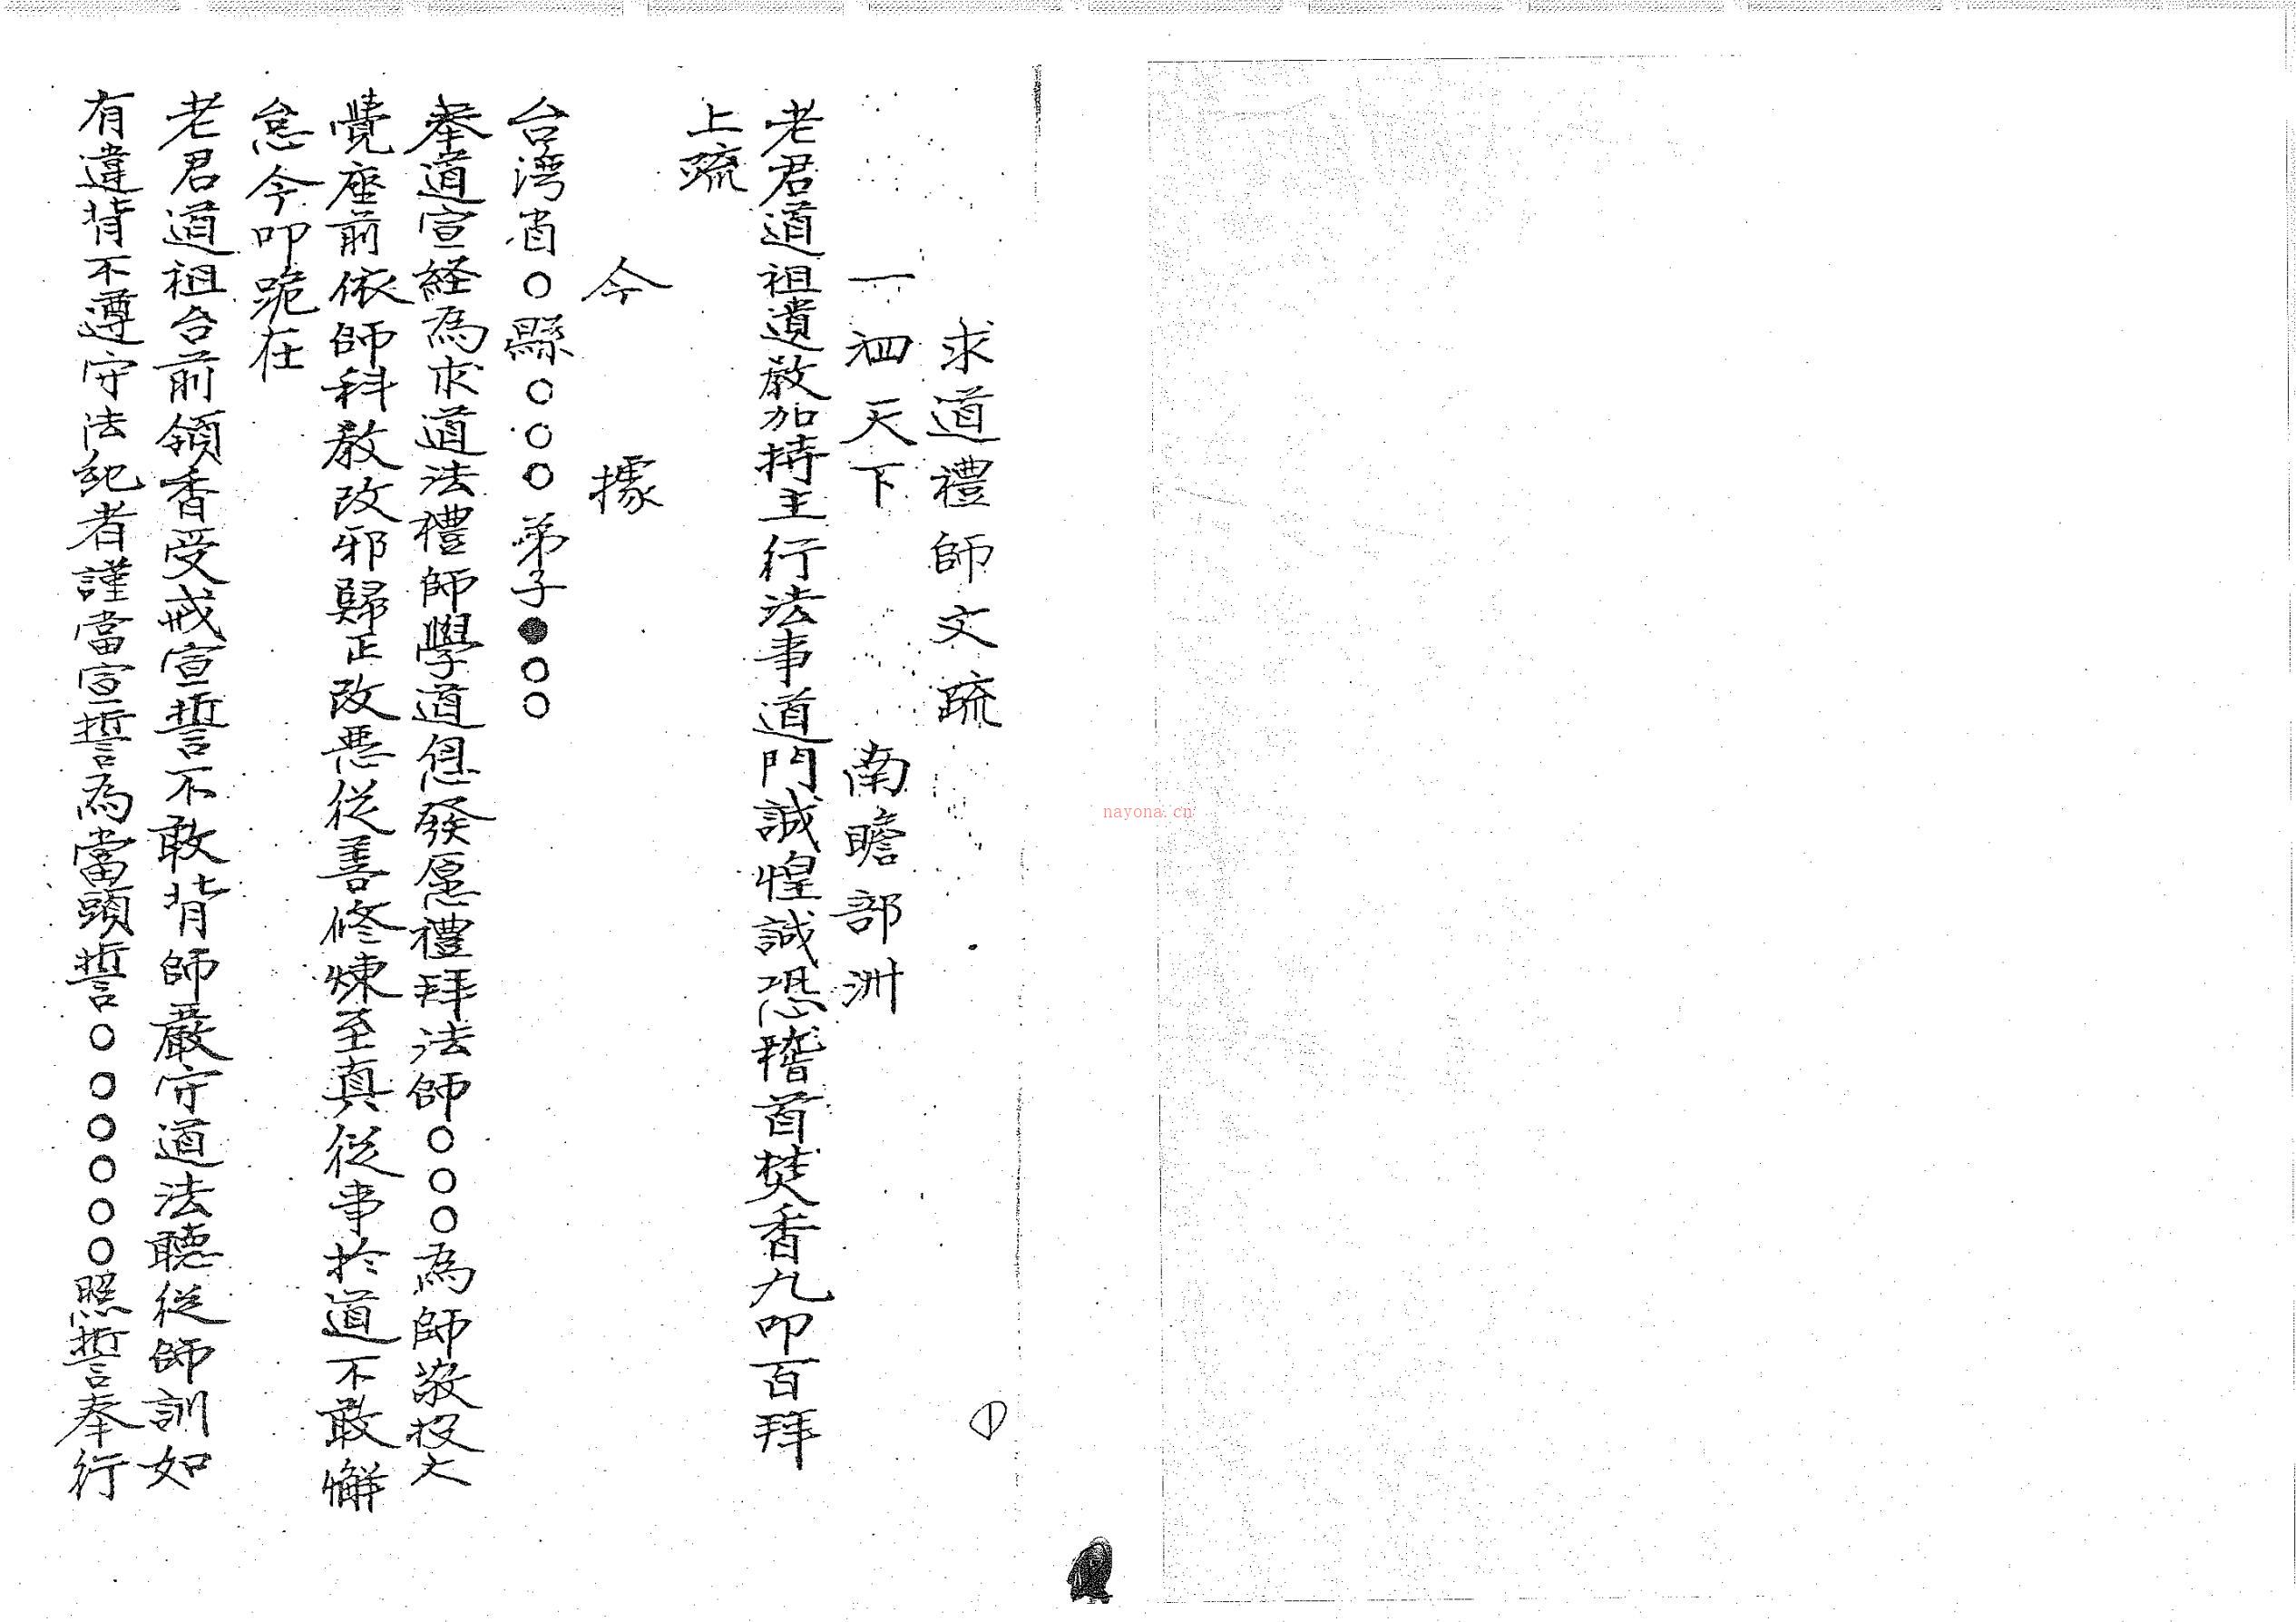 求道禮師文疏
一泗天下　南瞻部洲
老君道祖遺教加持主行法事道門誠惶誠恐稽首焚香九叩百拜
上疏
今據
台湾省○縣○○○弟子●○○
奉道宣経為求道法禮師學道息發愿禮拜法師○○○為師敬投大
覺座前依師科教改邪歸正改悪従善修煉至真従事於道不敢懈
怠今叩跪在
老君道祖台前領香受戒宣誓不敢背師嚴守道法聽従師訓如
有違背不遵守法紀者謹當宣誓為當頭誓○○○○○○照誓奉行
①
nayona.cn